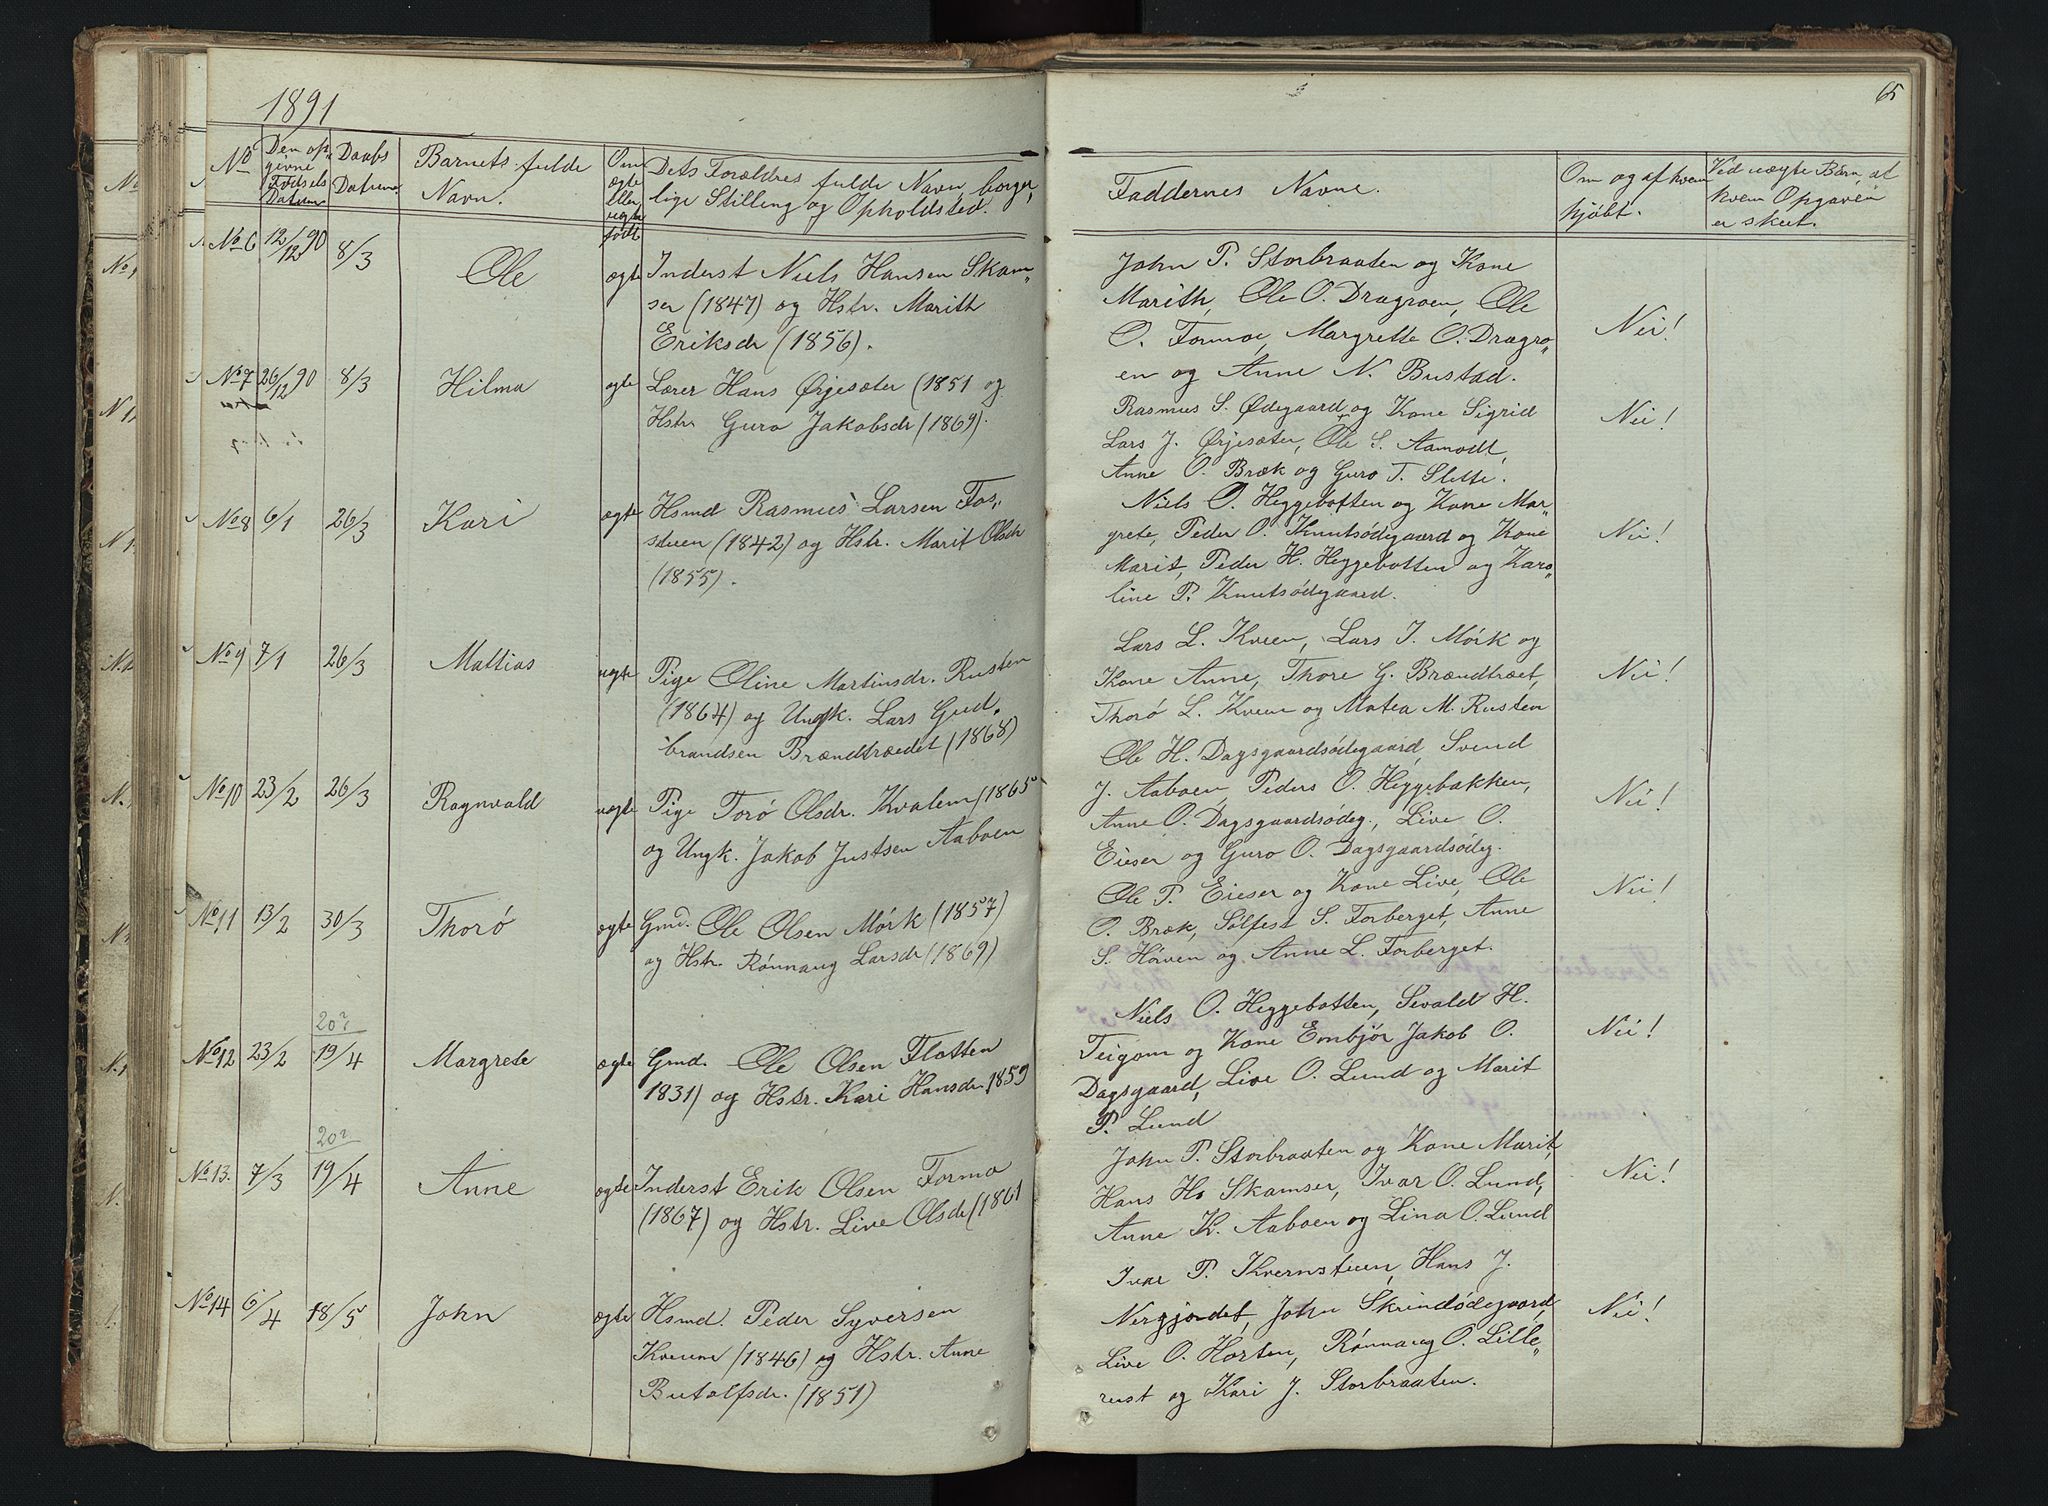 1891
No
Den op„
givne
Fødsels
Datum
Daabs
Datum.
Barnets fulde
Navn.
Om
ægte
eller
uægte
født
Dets Forældres fulde Navn, borger„
lige Stilling og Opholdsted.
No 6 12/12 90 8/3 Ole ægte Inderst Niels Hansen Skam„
ser (1847) og Hstr. Marith
Eriksdr (1856).
No 7 26/12 90 8/3 Hilma ægte Lærer Hans Ørjesæter (1851 og
Hstr. Guro Jakobsdr (1869).
No 8 6/1 26/3 Kari ægte Hsmd Rasmus Larsen Fos„
stuen (1842) og Hstr. Marit Olsdr
(1855).
No 9 7/1 26/3 Mattias uægte Pige Oline Martinsdr. Rusten
(1864) og Ungk. Lars Gud„
brandsen Brændtrædet (1868)
No 10 23/2 26/3 Ragnvald uægte Pige Torø Olsdr. Kvalem (1865
og Ungk. Jakob Justsen Aaboen
No 11 13/2 30/3 Thorø ægte Gmd. Ole Olsen Mørk (1857)
og Hstr. Rønnaug Larsdr (1869)
20?
No 12 23/2 19/4 Margrete ægte Gmd. Ole Olsen Flatten
1831) og Hstr. Kari Hansdr. 1859
20?
No 13. 7/3 19/4 Anne ægte Inderst Erik Olsen Formo
(1867) og Hstr. Live Olsdr (1861
No 14 6/4 18/5 John ægte Hsmd. Peder Syversen
Kveune (1846) og Hstr. Anne
Butolfsdr. (1851)
65
Faddernes Navne.
Om og af hvem
hjøbt.
Ved uægte Børn, at
hvem Opgaven
er skeet.
John P. Storbraaten og Kone
Marith, Ole O. Dragroen, Ole
O. Formoe, Margrette O. Dragro„
en og Anne N. Bustad.
Nei!
Rasmus S. Ødegaard og Kone Sigrid
Lars J. Ørjesæter, Ole S. Aamodt,
Anne O. Bræk og Guro T. Slette.
Nei!
Niels O. Heggebotten og Kone Mar„
grete, Peder O. Knutsødegaard og Kone
Marit, Peder H. Heggebotten og Karo„
line P. Knutsødegaard.
Nei!
Lars L. Kveen, Lars J. Mørk og
Kone Anne, Thore G. Brændtræet,
Thorø L. Kveen og Matea M. Rusten
Nei!
Ole H. Dagsgaardsødegaard, Svend
J. Aaboen, Peders O. Heggebakken,
Anne O. Dagsgaardsødeg., Live O.
Eieser og Guro O. Dagsgaardsødeg.
Nei!
Ole P. Eieser og Kone Live, Ole
O. Bræk, Sølfest S. Forberget, Anne
S. Horven og Anne L. Forberget.
Nei!
Niels O. Heggebotten, Sevald H.
Teigom og Kone Embjør Jakob O.
Dagsgaard, Live O. Lund og Marit
P. Lund
Nei!
John P. Storbraaten og Kone Marit,
Hans H. Skamser, Ivar O. Lund,
Anne K. Aaboen og Lina O. Lund
Nei!
Ivar P. Kvernstuen, Hans J.
Nergjordet, John Skrindødegaard,
Live O. Horten, Rønnaug O. Lille„
rust og Kari J. Storbraaten.
Nei!